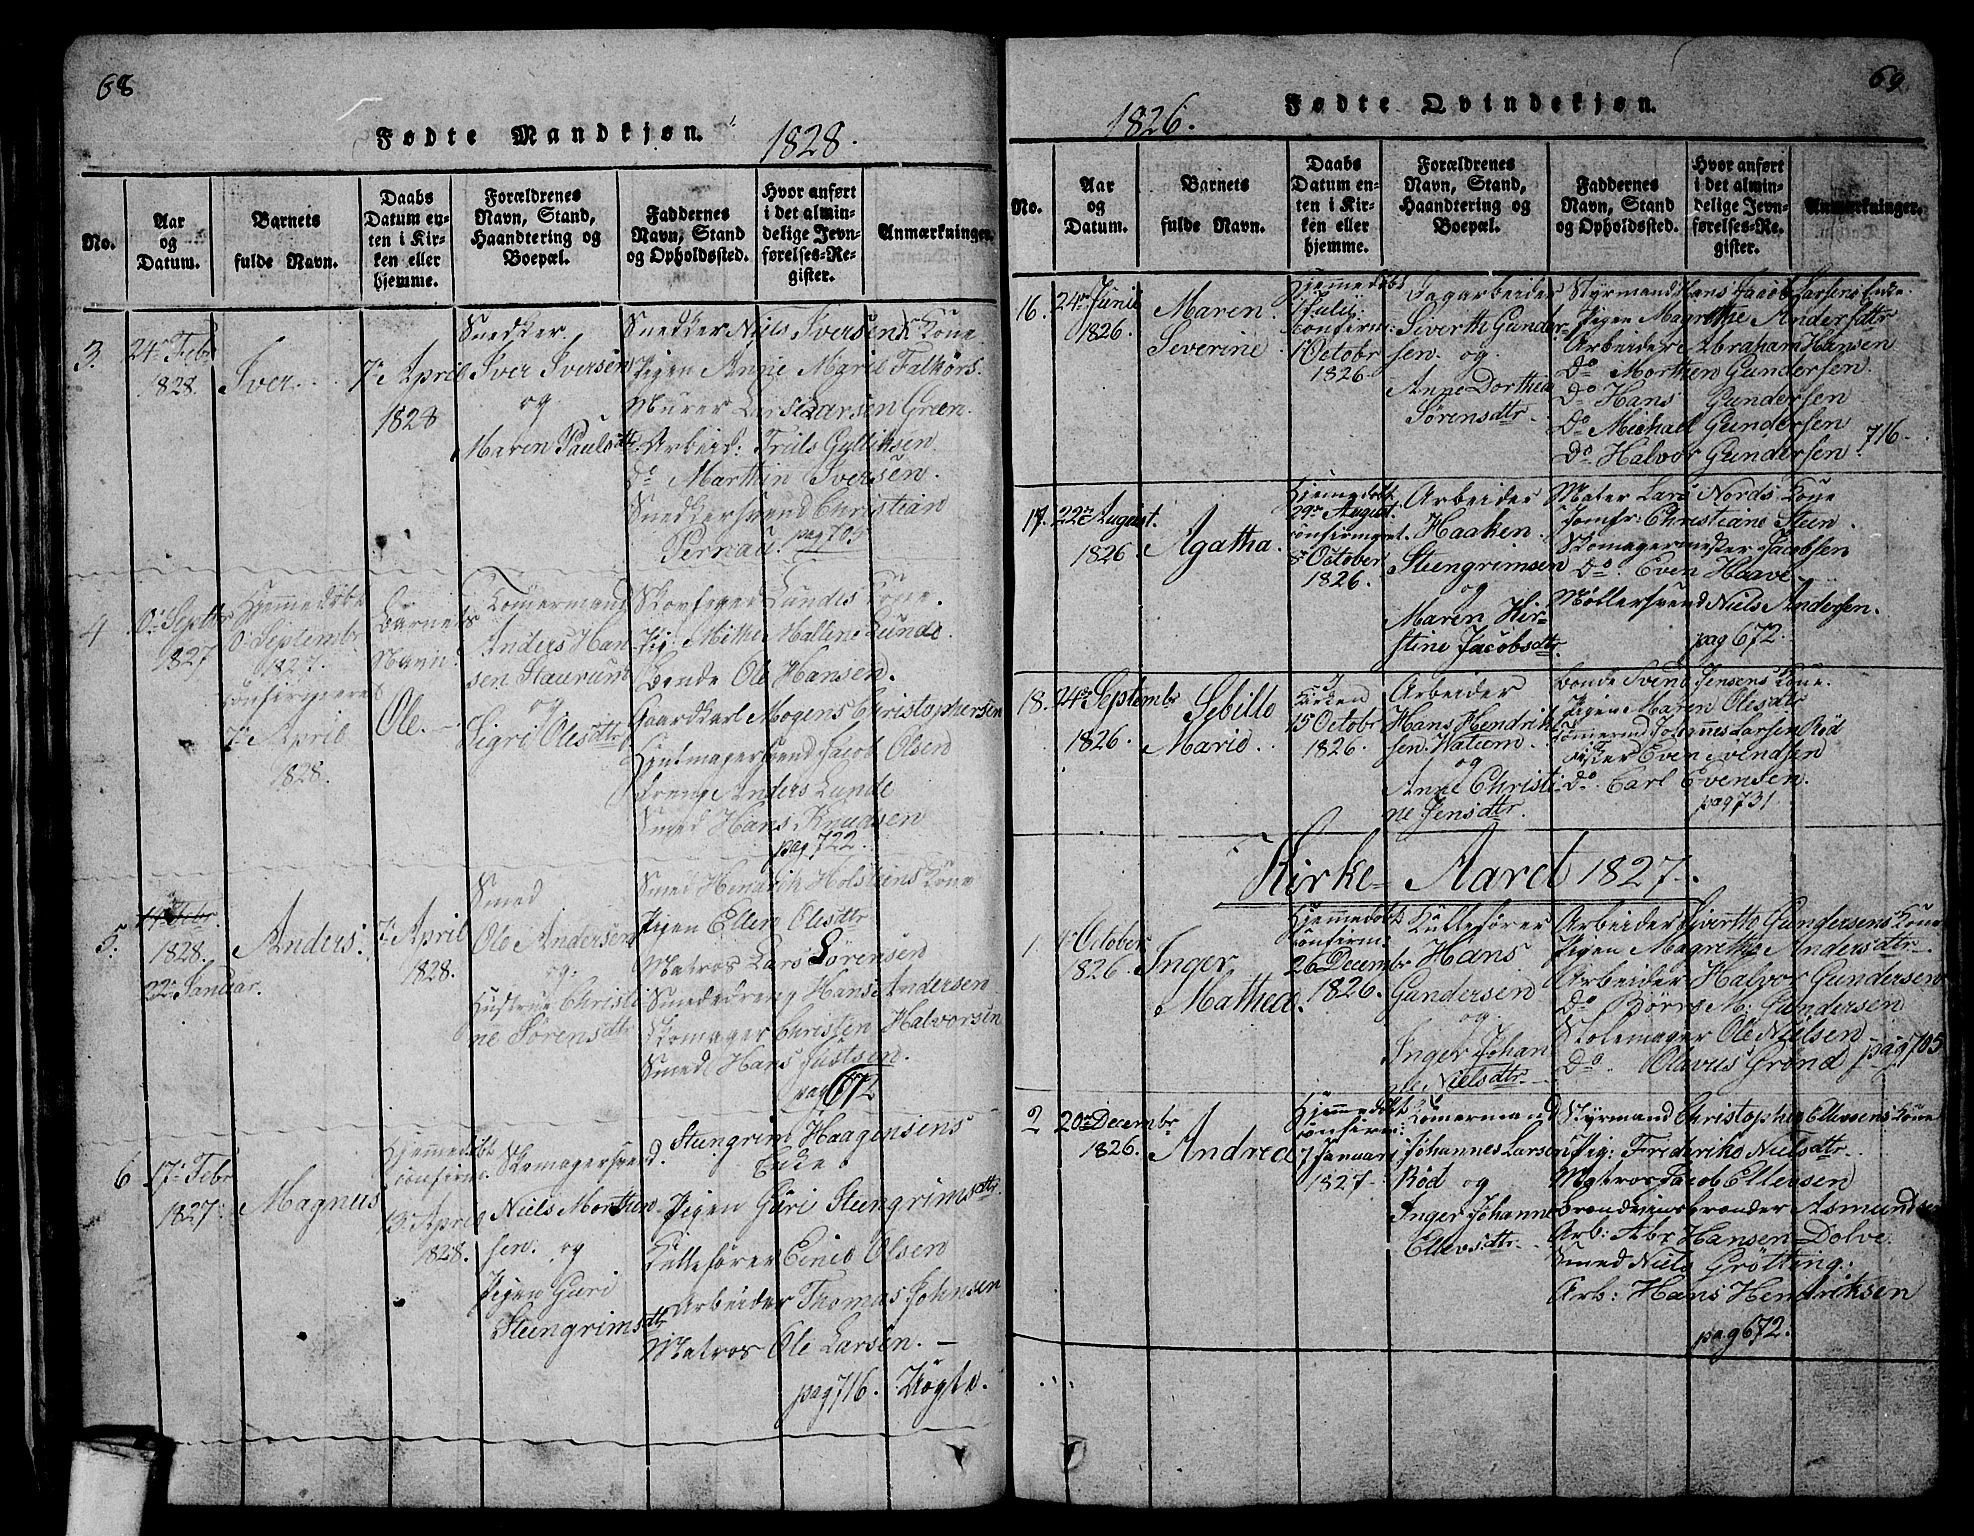 68
Fødte Mandkjøn.
1828.
No.
Aar
og
Datum.
Barnets
fulde Navn.
Daabs
Datum en-
ten i Kir-
ken eller
hjemme.
Forældrenes
Navn, Stand,
Haandtering og
Boepæl.
Faddernes
Navn, Stand
og Opholdssted.
Hvor anført
i det almin-
delige Jevn-
førelses-Re-
gister.
Anmærkninger.
3.
24. Febr
1828.
Iver.
7de April
1828
Snedker
Iver Iversen
og
Maren Paulsdtr
Snedker Niels Iversens Kone
Pigen Anne Marie Falkørs.
Murer Larsen Green.
Arbeid: Truls Gulliksen
Do Marthin Iversen.
Snedkersvend Christian
Pernau. pag 705
4
Septbr
1827
Hjemmedøbt
Septembr
1827.
confirmeret
7de April
1828.
Barnets
Navn:
Ole.
Tømermand
Anders Han-
sen Staurum
og
Sigri Olesdtr
Skovfoged Lundes Kone.
Pig: Mallene Lunde.
Bonde Ole Hansen.
Gaardkarl Mogens Christophersen
Jacob Olsen
Dreng Anders Lunde
Smed Hans Knudsen
pag 722.
5.
14 Febr
1828.
22de Januar.
Anders.
7de April
1828.
Smed
Ole Andersen
og
Hustrue Christi
ne Sørensdtr
Smed Hendrik Holstens Kone
Pigen Ellen Olesdtr
Matros Lars Sørensen
Smededreng Hans Andersen
Skomager Christen Halvorsen
Smed Hans Justsen.
pag 672
6
17de Febr
1827.
Magnus
Hjemmedøbt
confirm.
13 April
1828.
Skomagersvend.
Niels Morthen
sen. og
Pigen Guri
Steengrimsdtr
Steengrim Haagensens
Enke.
Pigen Guri Steengrimsdtr.
Kullefører Olsen
Arbeider Thomas Johnsen
Matros Ole Larsen.
pag 716. Uægte.
69
1826.
Fødte Qvindekjøn.
No.
Aar
og
Datum.
Barnets
fulde Navn.
Daabs
Datum en-
ten i Kir-
ken eller
hjemme.
Forældrenes
Navn, Stand,
Haandtering og
Boepæl.
Faddernes
Navn, Stand
og Opholdssted.
Hvor anført
i det almin-
delige Jevn-
førelses-Re-
gister.
Anmærkninger.
16.
24de Junii
1826.
Maren
Severine
Hjemmedøbt
Julii
Confirm:
1 Octobr
1826.
Dagarbeider
Siverth Gunder-
sen. og
Anne Dorthea
Sørensdtr.
Styrmand Hans Jacob Larsens Enke.
Pigen Magrethe Andersdtr
Arbeider Abraham Hansen
Do Morthen Gundersen.
Do Hans Gundersen
Do Michael Gundersen
Do Halvor Gundersen
716.
17.
22de August.
1826
Agatha.
Hjemmedøbt
29de August.
confirmeret.
8 October
1826.
Arbeider
Haaken
Steengrimsen
og
Maren Kir-
stine Jacobsdtr.
Maler Lars Nords Kone
Jomfr: Christiane Steen.
Skomagermester Jacobsen
Do. Even Haave
Møllersvend Niels Andersen.
pag 672.
18.
24de Septembr
1826.
Sebille
Marie.
i
Kirken
15 Octobr
1826.
Arbeider
Hans Hendrik-
sen.
og
Anne Christi
ne Jensdtr.
Bonde Svend Jensens Kone.
Pigen Maren Olesdtr
Tømermd Johannes Larsen Rød
Even Svendsen
Do. Carl Evensen.
pag 731
Kirke-Aaret 1827.
1.
October
1826.
Inger
Mathea.
Hjemmedøbt
confirm.
26 Decembr
1826.
Kullefører
Hans
Gundersen
og
Inger Johan
ne Nielsdtr.
Arbeider Siverth Gundersens Kone
Pigen Magrethe Andersdtr
Arbeider Halvor Gundersen
Do Børre M: Gundersen
Stolemager Ole Nielsen
Do Olavus Grønd
pag 705
2
20de Decembr
1826.
Andrea
Hjemmedøbt
confirm:
7 Januari
1827.
Tømermand
Johannes Larsen
Rød og
Inger Johanne
Ellevsdtr.
Styrmand Christopher Ellevsens Kone
Pig: Frederike Nielsdtr.
Matros Jacob Ellevsen
Brændviinsbrænder Asmundsen
Arb: Abr Hansen Dolve.
Smed Niels Grøtting:
Arb: Hans Hendriksen
pag 672.